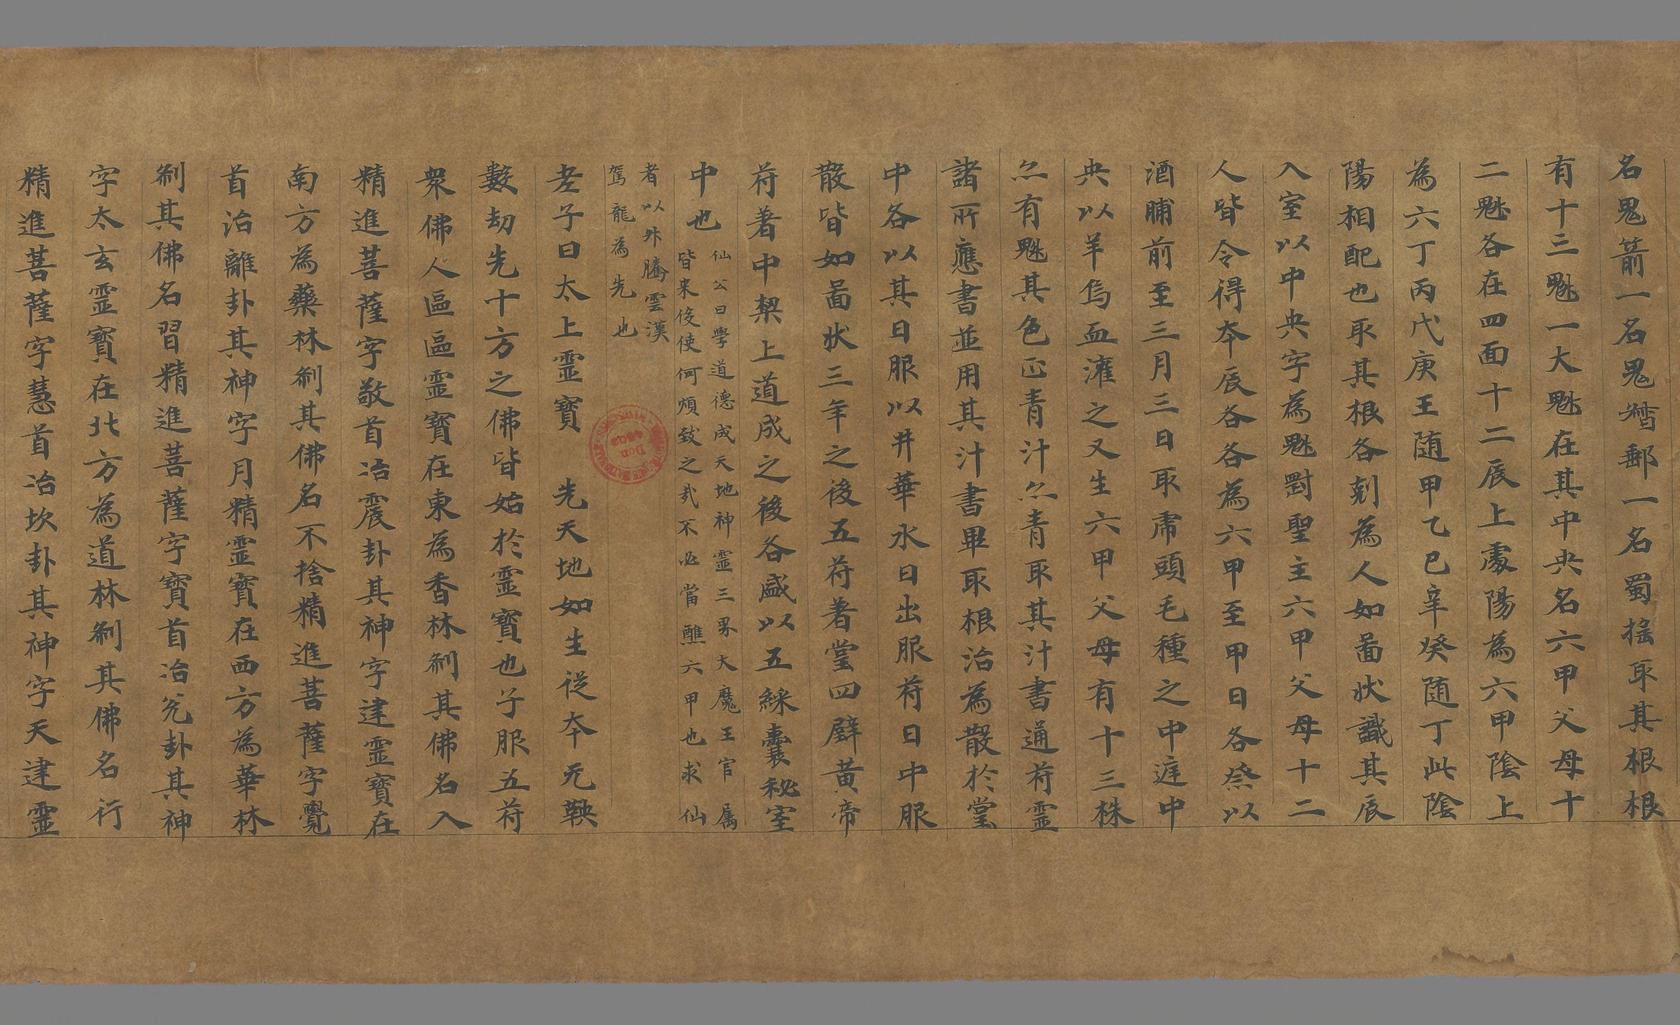 名鬼箭一名鬼督郵一名蜀搖取其根根
有十三魁一大魁在其中央名六甲父母十
二魁各在四面十二辰上處陽為六甲陰上
為六丁丙戊庚壬随甲乙巳辛癸随丁此陰
陽相配也取其根各刻為人如啚狀識其辰
入室以中央字為魁對聖主六甲父母十二
人皆令得夲辰各各為六甲至甲日各祭以
酒脯前至三月三日取虎頭毛種之中庭中
央以羊烏血灌之又生六甲父母有十三株
亦有魁其色正青汁亦青取其汁書通苻靈
諸所應書並用其汁書畢取根治為散於堂
中各以其日服以井華水日出服苻日中服
散皆如啚狀三年之後五苻著堂四壁黃帝
苻著中梁上道成之後各盛以五綵囊秘室
中也
仙公曰學道德成天地神靈三界大魔王官属
皆来伇使何煩致之哉不必當醮六甲也求仙
者以外騰雲漢
駕龍為先也
老子曰太上靈寶 先天地如生從夲无鞅
數劫先十方之佛皆始於靈寶也子服五苻
衆佛人區區靈寶在東為香林剎其佛名入
精進菩薩字敬首治震卦其神字建靈寶在
南方為藥林剎其佛名不捨精進菩薩字覺
首治離卦其神字月精靈寶在西方為華林
剎其佛名習精進菩薩字寶首治兌卦其神
字太玄靈寶在北方為道林剎其佛名行
精進菩薩字慧首治坎卦其神字天建靈
Don